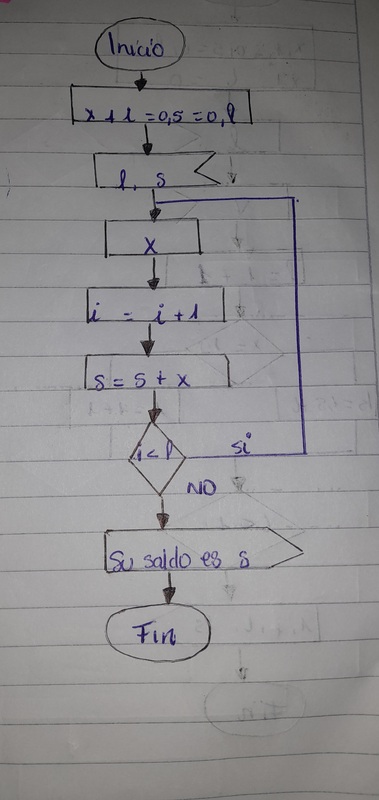 Inicio
x + 1 = 0, s = 0, l
l, s
x
i = i + 1
s = s + x
i < l
si
NO
Su saldo es s
Fin